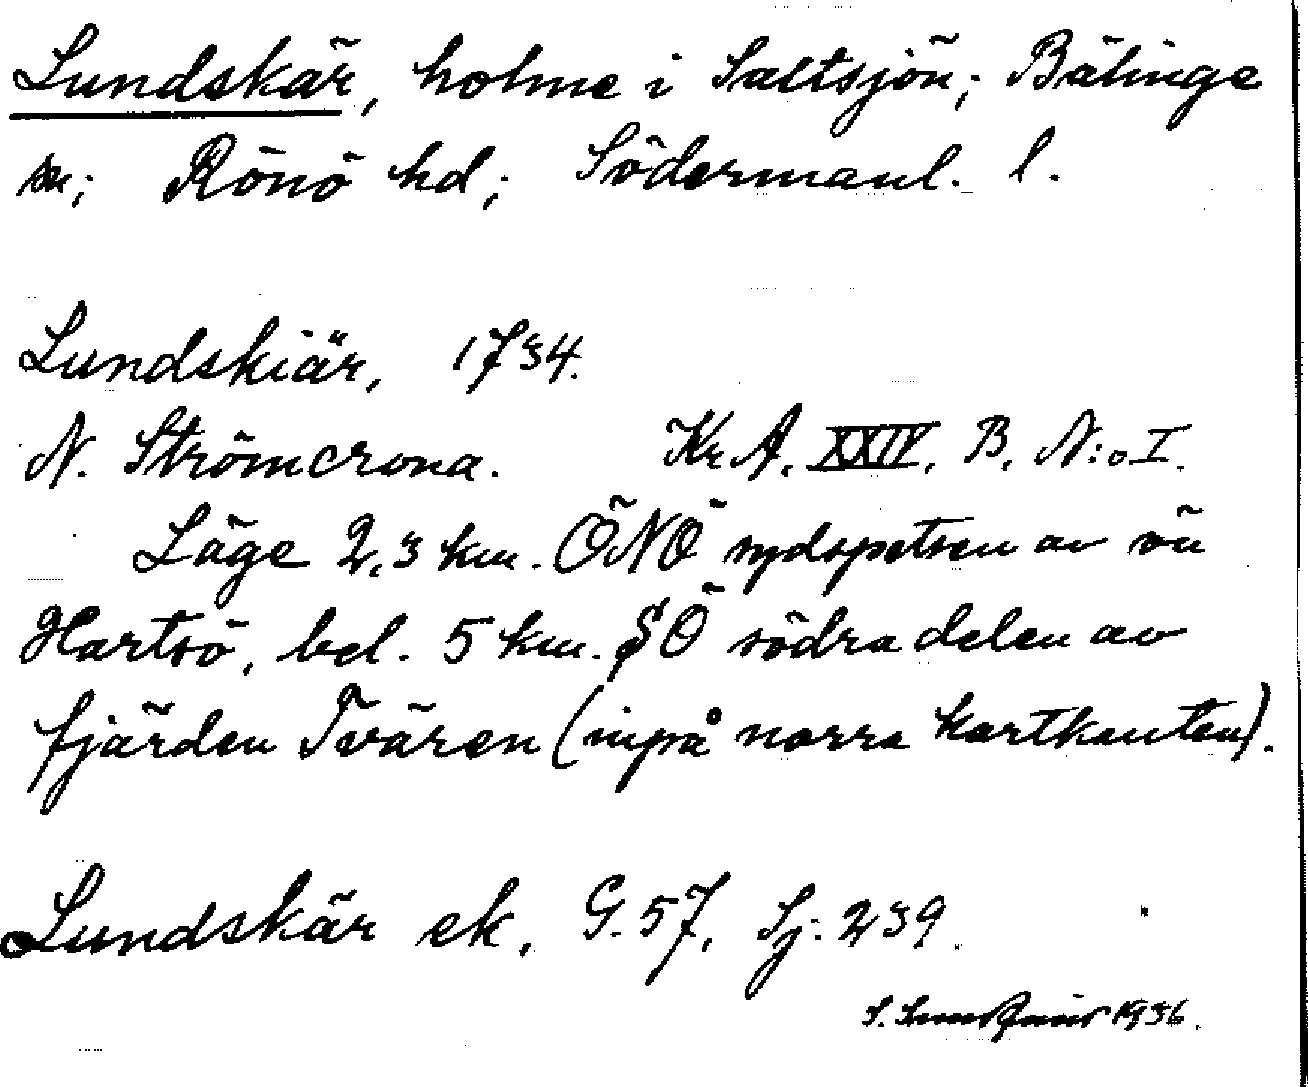 Lundskär, holme i Saltsjön; Bälinge
sn; Rönö hd; Södermanl. l.
Lundskiär, 1734.
N. Strömcrona. Kr A. XXIV. B. N:o I.
Läge 2,3 km. ÖNÖ sydspetsen av ön
Hartsö, bel. 5 km. SÖ södra delen av
fjärden Tvären (inpå norra kartkanten).
Lundskär ek. G. 57, Sj: 239.
S. 1936.